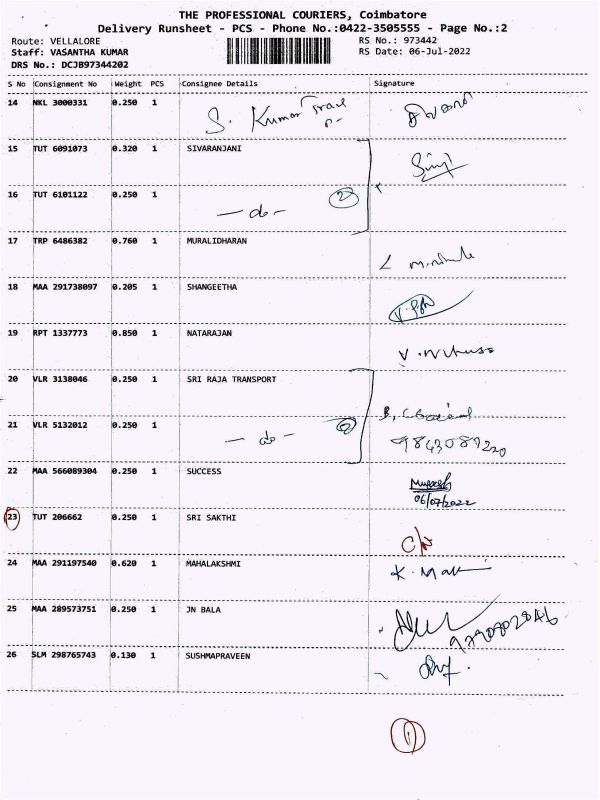 THE PROFESSIONAL COURIERS, Coimbatore
Delivery Runsheet - PCS - Phone No.:0422-3505555 - Page No.:2
Route: VELLALORE RS No.: 973442
Staff: VASANTHA KUMAR RS Date: 06-Jul-2022
DRS No.: DCJB97344202
S No Consignment No Weight PCS Consignee Details Signature
14 NKL 3000331 0.250 1 S. Kumar
15 TUT 6091073 0.320 1 SIVARANJANI
16 TUT 6101122 0.250 1 - do - 2
17 TRP 6486382 0.760 1 MURALIDHARAN
18 MAA 291738097 0.205 1 SHANGEETHA
19 RPT 1337773 0.850 1 NATARAJAN
20 VLR 3138046 0.250 1 SRI RAJA TRANSPORT
21 VLR 5132012 0.250 1 - do - 2
22 MAA 566089304 0.250 1 SUCCESS
06/07/2022
23 TUT 206662 0.250 1 SRI SAKTHI
24 MAA 291197540 0.620 1 MAHALAKSHMI
25 MAA 289573751 0.250 1 JN BALA
26 SLM 298765743 0.130 1 SUSHMAPRAVEEN
1